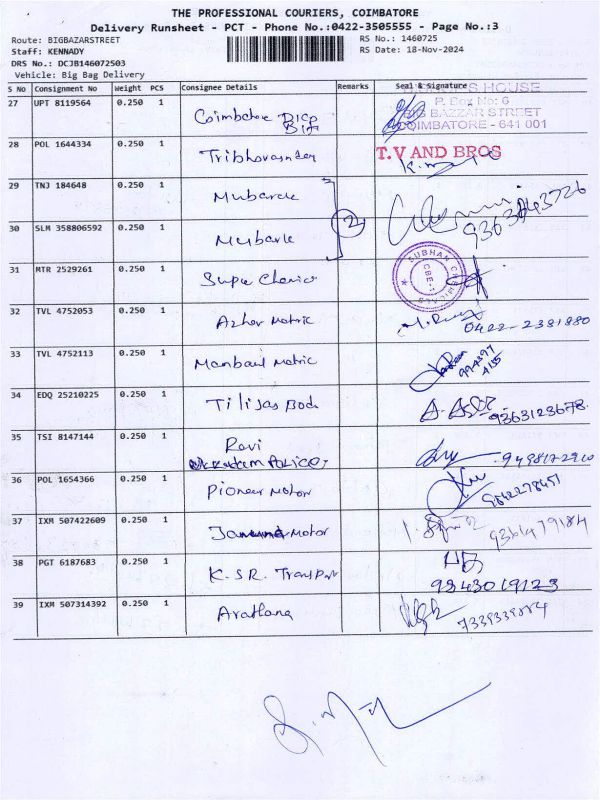 THE PROFESSIONAL COURIERS, COIMBATORE
Delivery Runsheet - PCT - Phone No.:0422-3505555 - Page No.:3
Route: BIGBAZARSTREET RS No.: 1460725
Staff: KENNADY RS Date: 18-Nov-2024
DRS No.: DCJB146072503
Vehicle: Big Bag Delivery
S No Consignment No Weight PCS Consignee Details Remarks Seal & Signature
27 UPT 8119564 0.250 1 Coimbatore HOUSE
P. Box No: 6
BIG BAZZAR STREET
COIMBATORE - 641 001
28 POL 1644334 0.250 1 T.V AND BROS
29 TNJ 184648 0.250 1 Mubarak
2
30 SLM 358806592 0.250 1 Mubarak
31 MTR 2529261 0.250 1 SUBHAM CHEMICALS CBE-1
32 TVL 4752053 0.250 1 Azhar Matric 0422-2381880
33 TVL 4752113 0.250 1 Manbaul Matric 994397
4155
34 EDQ 25210225 0.250 1 9363123678.
35 TSI 8147144 0.250 1 Ravi
9498172910
36 POL 1654366 0.250 1 Pioneer Motor 9842278451
37 IXM 507422609 0.250 1 Motor 9361479184
38 PGT 6187683 0.250 1 K.SR. Transport
9943019123
39 IXM 507314392 0.250 1 Arathana 7339339884